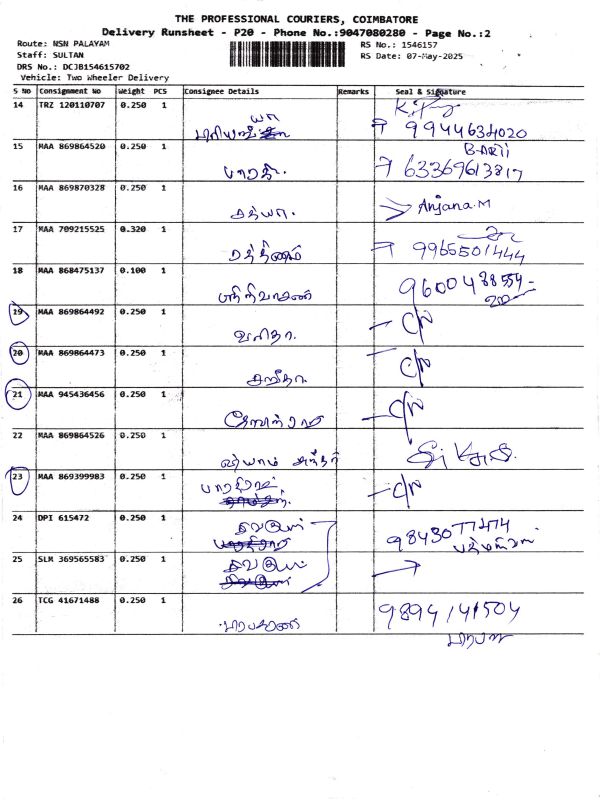 THE PROFESSIONAL COURIERS, COIMBATORE
Delivery Runsheet - P20 - Phone No.:9047080280 - Page No.:2
Route: NSN PALAYAM
RS No.: 1546157
Staff: SULTAN
RS Date: 07-May-2025
DRS No.: DCJB154615702
Vehicle: Two Wheeler Delivery
S No Consignment No Weight PCS Consignee Details Remarks Seal & Signature
14 TRZ 120110707 0.250 1
9944634020
15 MAA 869864520 0.250 1 BARII
பாரதி. 63369613817
16 MAA 869870328 0.250 1
சத்யா. Anjana.M
17 MAA 709215525 0.320 1
ரத்தினம் 9965501444
18 MAA 868475137 0.100 1
ஸ்ரீநிவாசன் 9600438554
19 MAA 869864492 0.250 1
வனிதா. C/N
20 MAA 869864473 0.250 1
C/N
21 MAA 945436456 0.250 1
C/N
22 MAA 869864526 0.250 1
23 MAA 869399983 0.250 1
C/N
24 DPI 615472 0.250 1
9843077474
25 SLM 369565583 0.250 1
26 TCG 41671488 0.250 1
பிரபாகரன் 9894141504